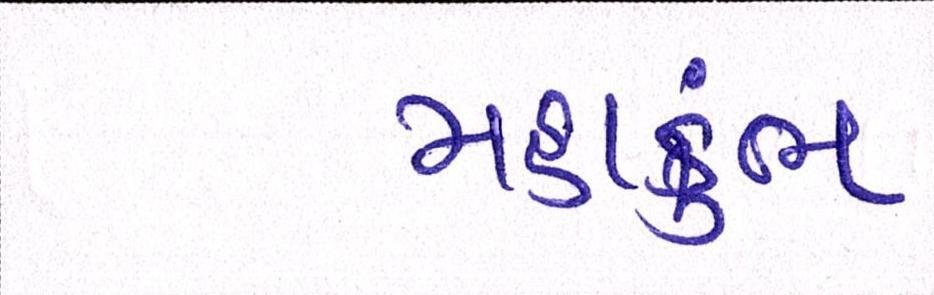 મહાકુંભ